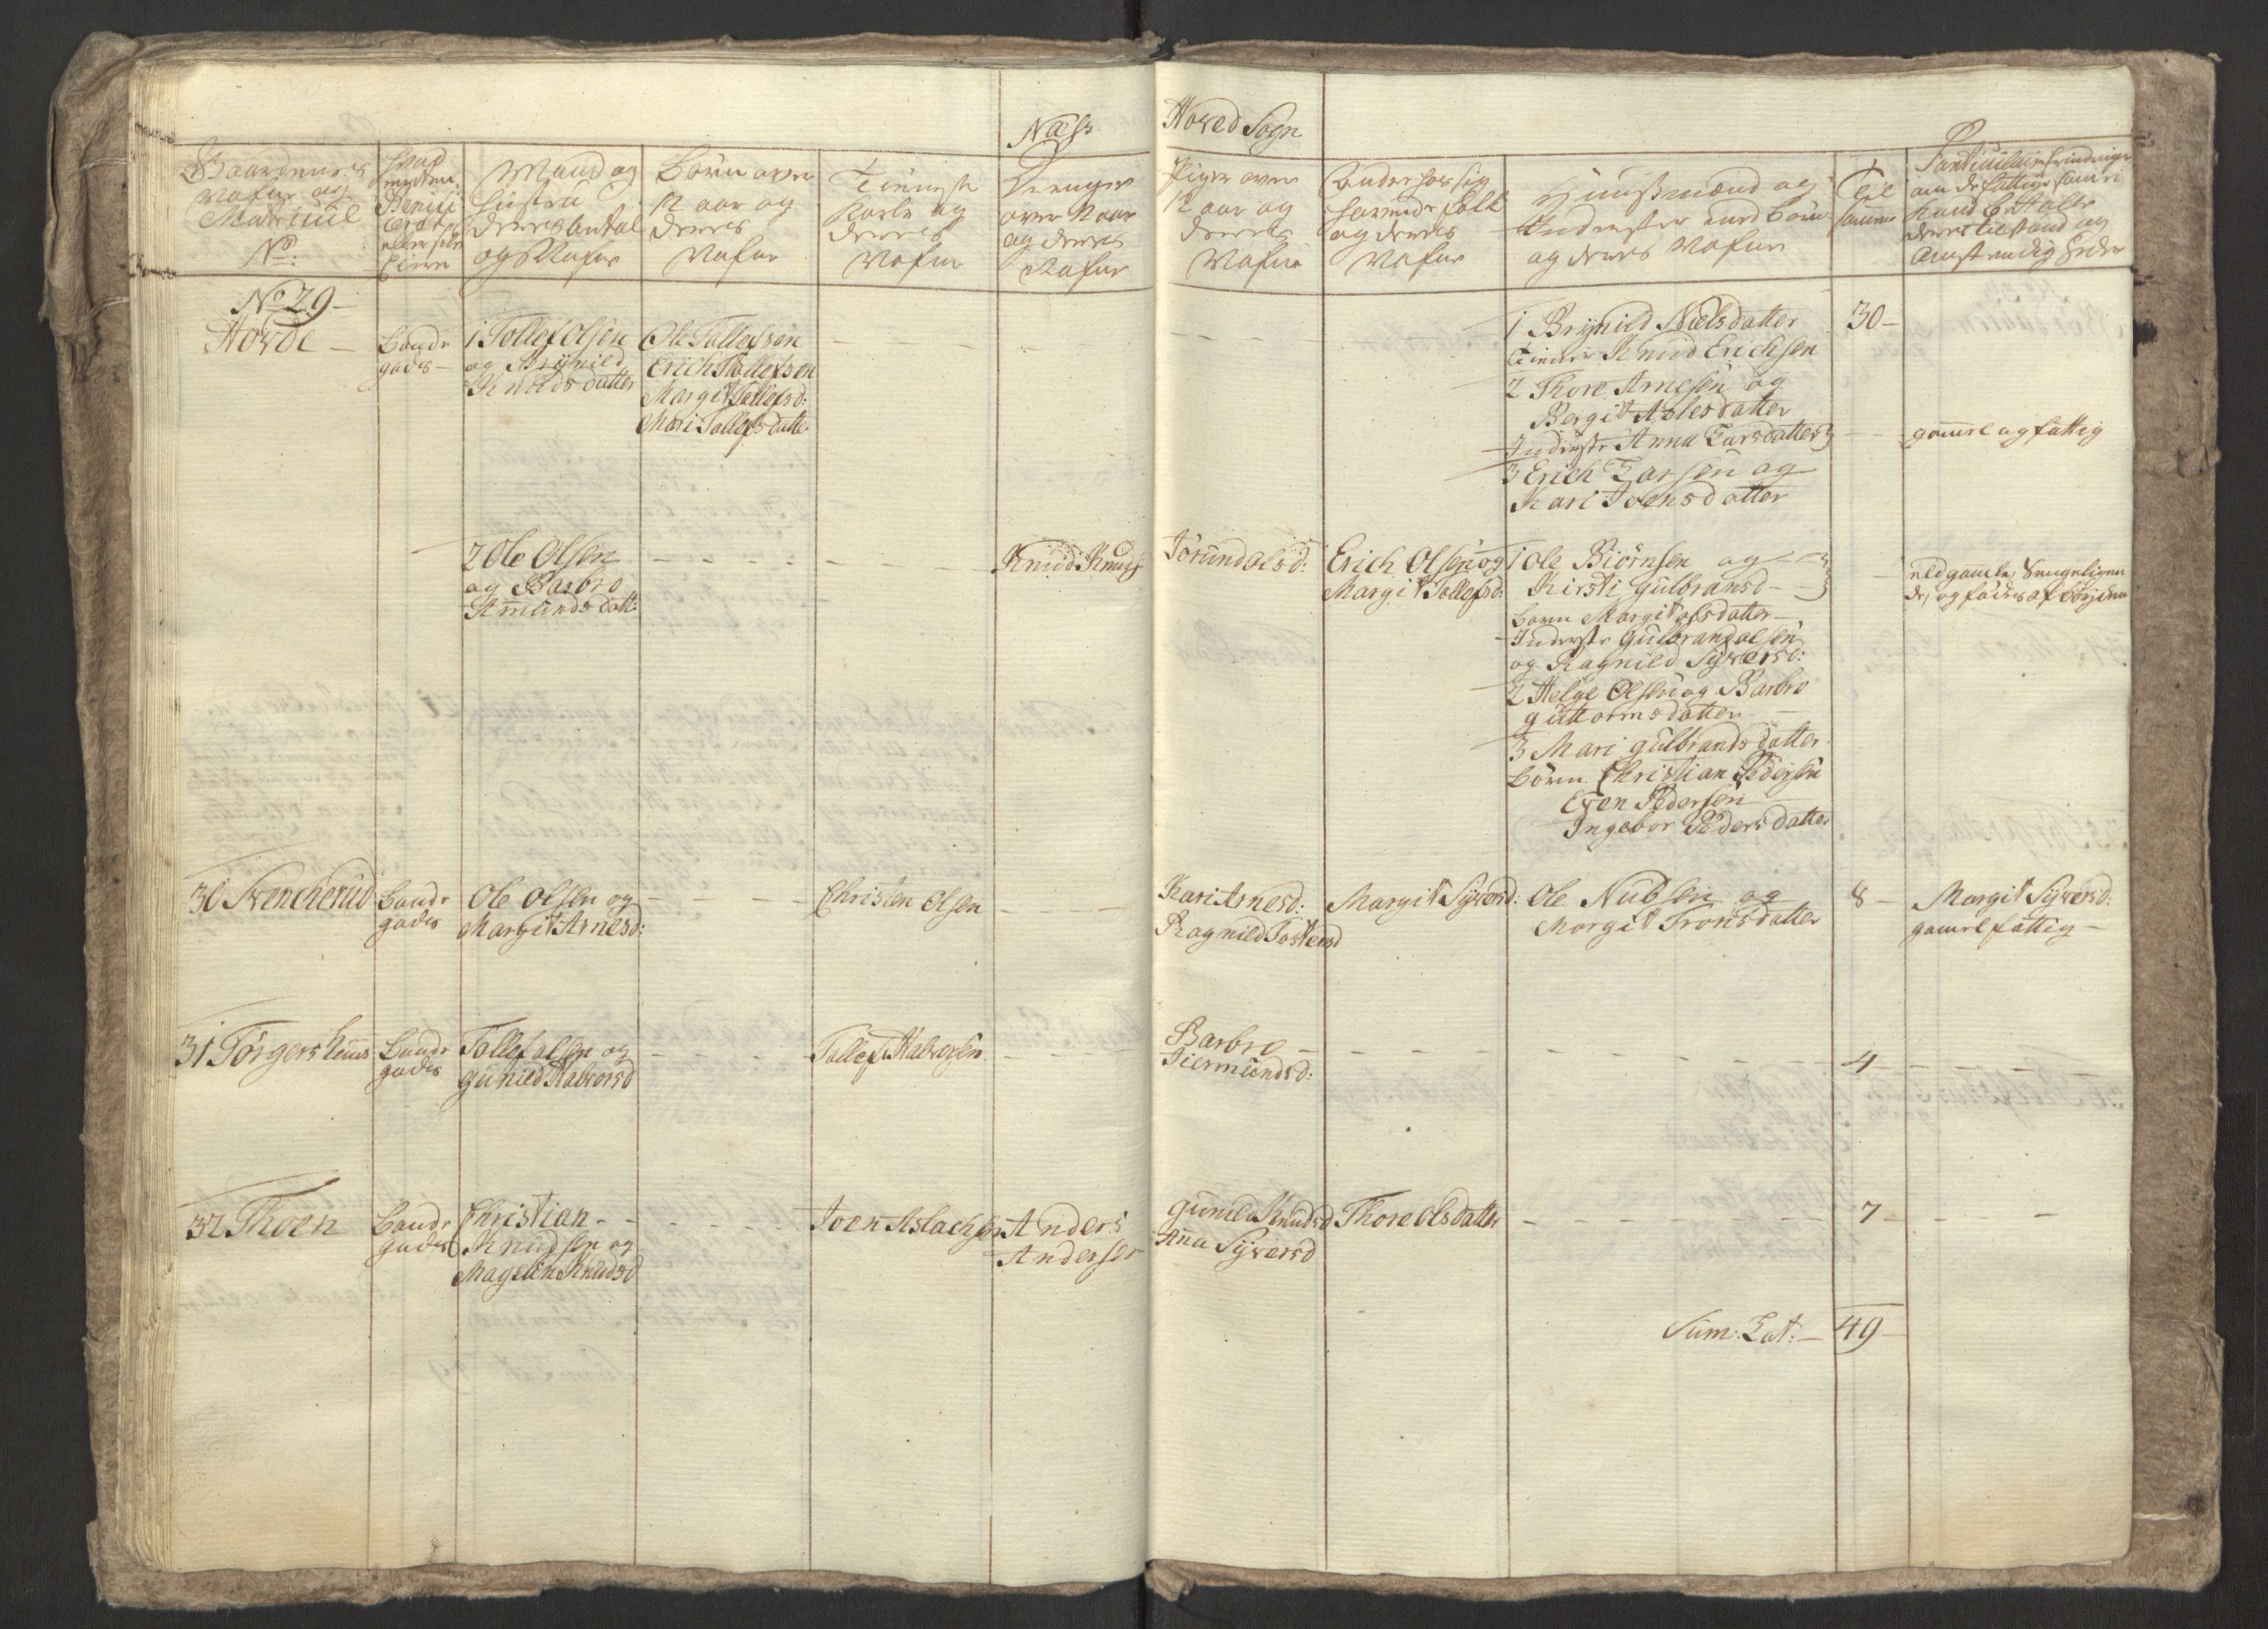 Næss
Hoved Sogn
Gaardenes
Nafne og
Matricul
No:
Mand og
Hustru
deres Antal
og Nafne
Børn over
12 aar og
deres
Nafne
Tieniste
Karle og
deres
Nafne
Drenger
over 12 aar
og deres
Nafne
Piger over
12 aar og
deres
Nafne
og deres
Nafne
Huusmænd og
Inderster med Børn
og deres Nafne
Til
sammen
No 29
Hovde
Bonde
gods
1 Tollef Olsen
og Brynild
Knudsdatter
Ole Tollefsen
Erich Tollefsen
Margit Tollefsd:
Mari Tollefsdatter
1 Brynild Nielsdatter
Knud Erichsen
2 Thore Arnesen og
Bergit Asles datter
Inderste Anna Larsdatter
3 Erich Larsen og
Kari Joensdatter
30
gamel og fattig
2 Ole Olsen
og Barbro
Amundsdatt:
Knud Knuds
Jorund olsd:
Erich Olsen og
Margit Tollefsd:
1 Ole Biørnsen og
Kirsti Gulbransd
Barn Margit olsdatter
Inderste Gulbrand olsen
og Ragnild Syversd:
2 Helge Olsen og Barbro
Guttormsdatter
3 Mari Gulbrandsdatter
Børn Christian Pedersen
Even Pedersen
Ingebor Pedersdatter
30 Svencherud
Bonde
gods
Ole Olsen og
Margit Arnesd:
Christen Olsen
Kari Arnesd:
Ragnild Tostensd
Margit Syversd:
Ole Nubsen og
Margit Tronsdatter
8
Margit Syversd:
gamel fattig
31 Torgershuus
Bonde
gods
Tollef olsen og
Gunild Halvorsd
Tollef Halvorsen
Barbro
Giermundsd:
4
32 Thoen
Bonde
gods
Christian
Knudsen og
Magelin Knudsd
Joen Aslachsen
Anders
Andersen
Gunild Knudsd
Anna Syversd
Thore Olsdatter
7
Sum: Lat:
49